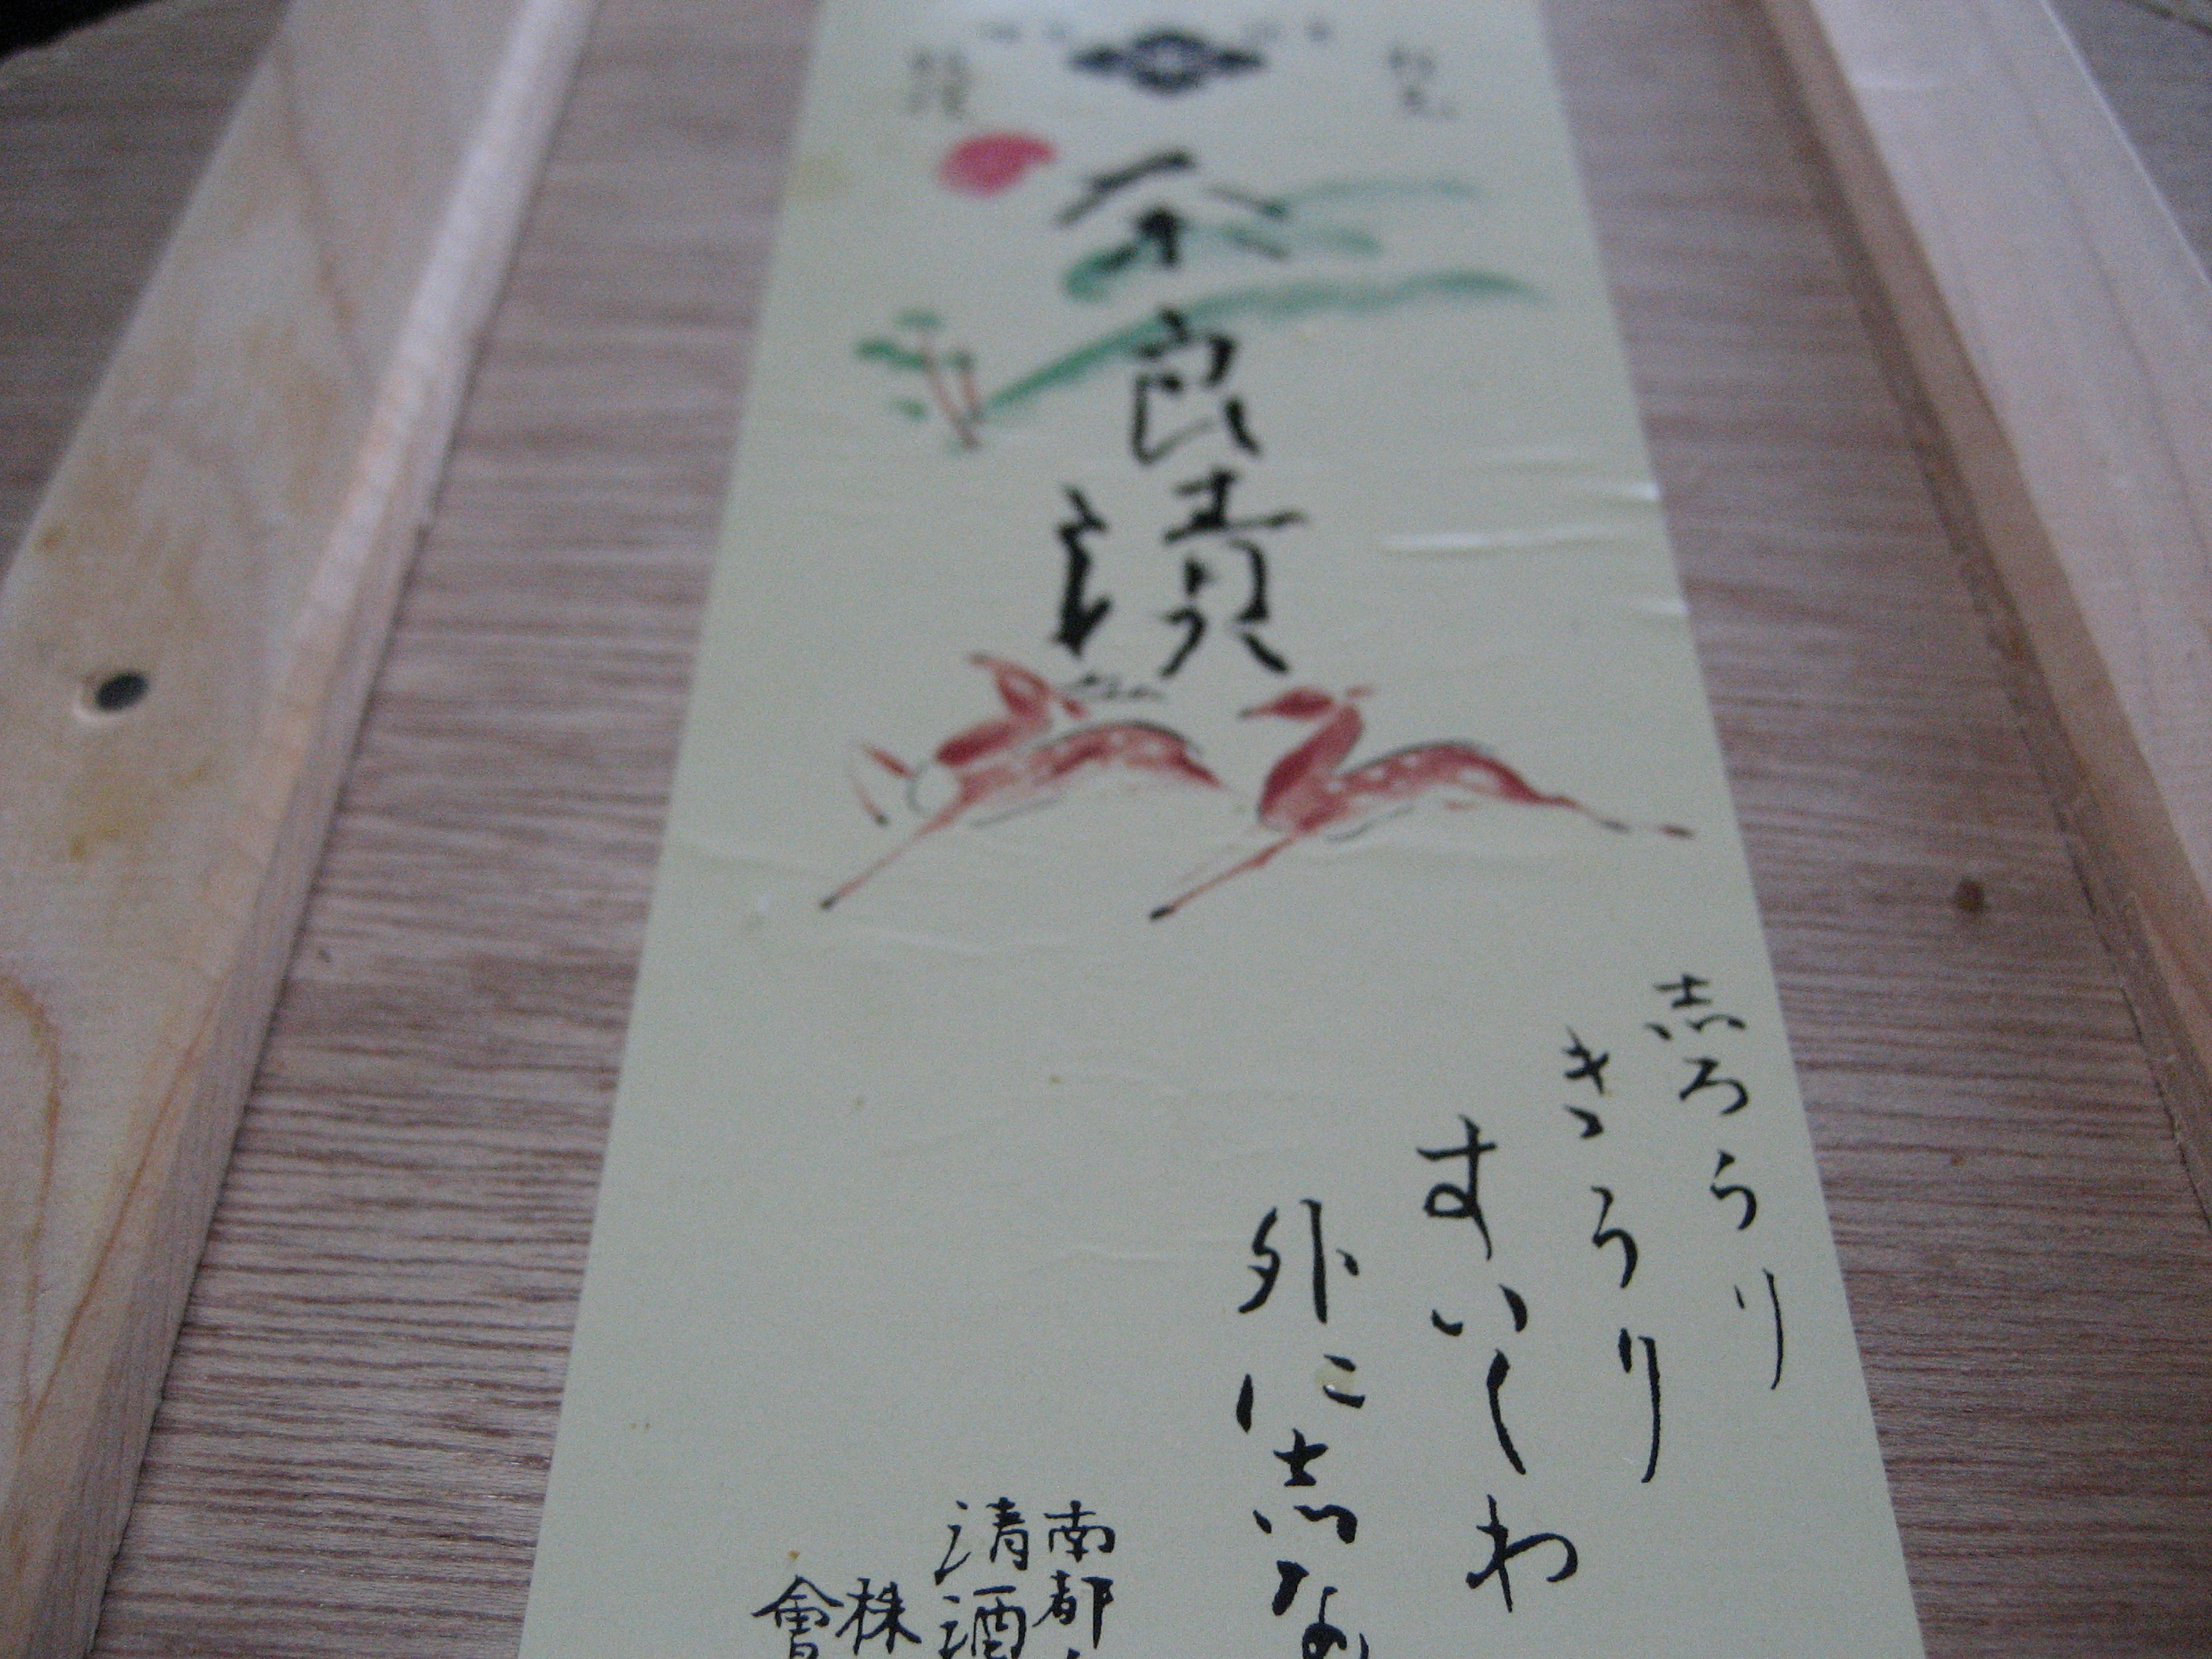 奈良漬
志ろうり
きうり
すいくわ
外に志な
南都
清酒
株
會